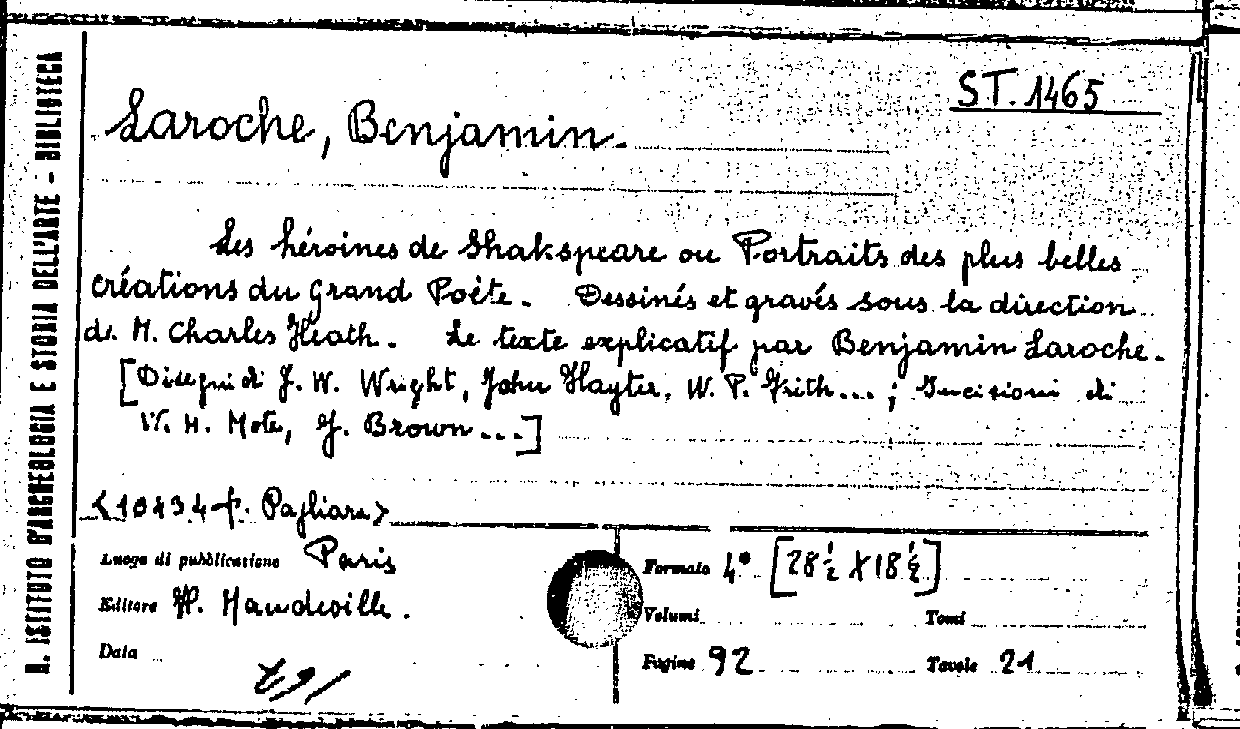 R. ISTITUTO D'ARCHEOLOGIA E STORIA DELL'ARTE - BIBLIOTECA
ST. 1465
Laroche, Benjamin.
Les héroines de Shakspeare ou Portraits des plus belles
créations du Grand Poète. Dessinés et gravés sous la direction
de M. Charles Heath. Le texte explicatif par Benjamin Laroche.
[Disegni di J. W. Wright, John Hayter, W. P. Frith...; Incisioni di
W. H. Mote, J. Brown...]
<10434 f. Pagliara>
Luogo di pubblicazione Paris
Editore H. Mandeville.
Data
Formato 4° [28 1/2 X 18 1/2]
Volumi Tomi
Pagine 92 Tavole 21